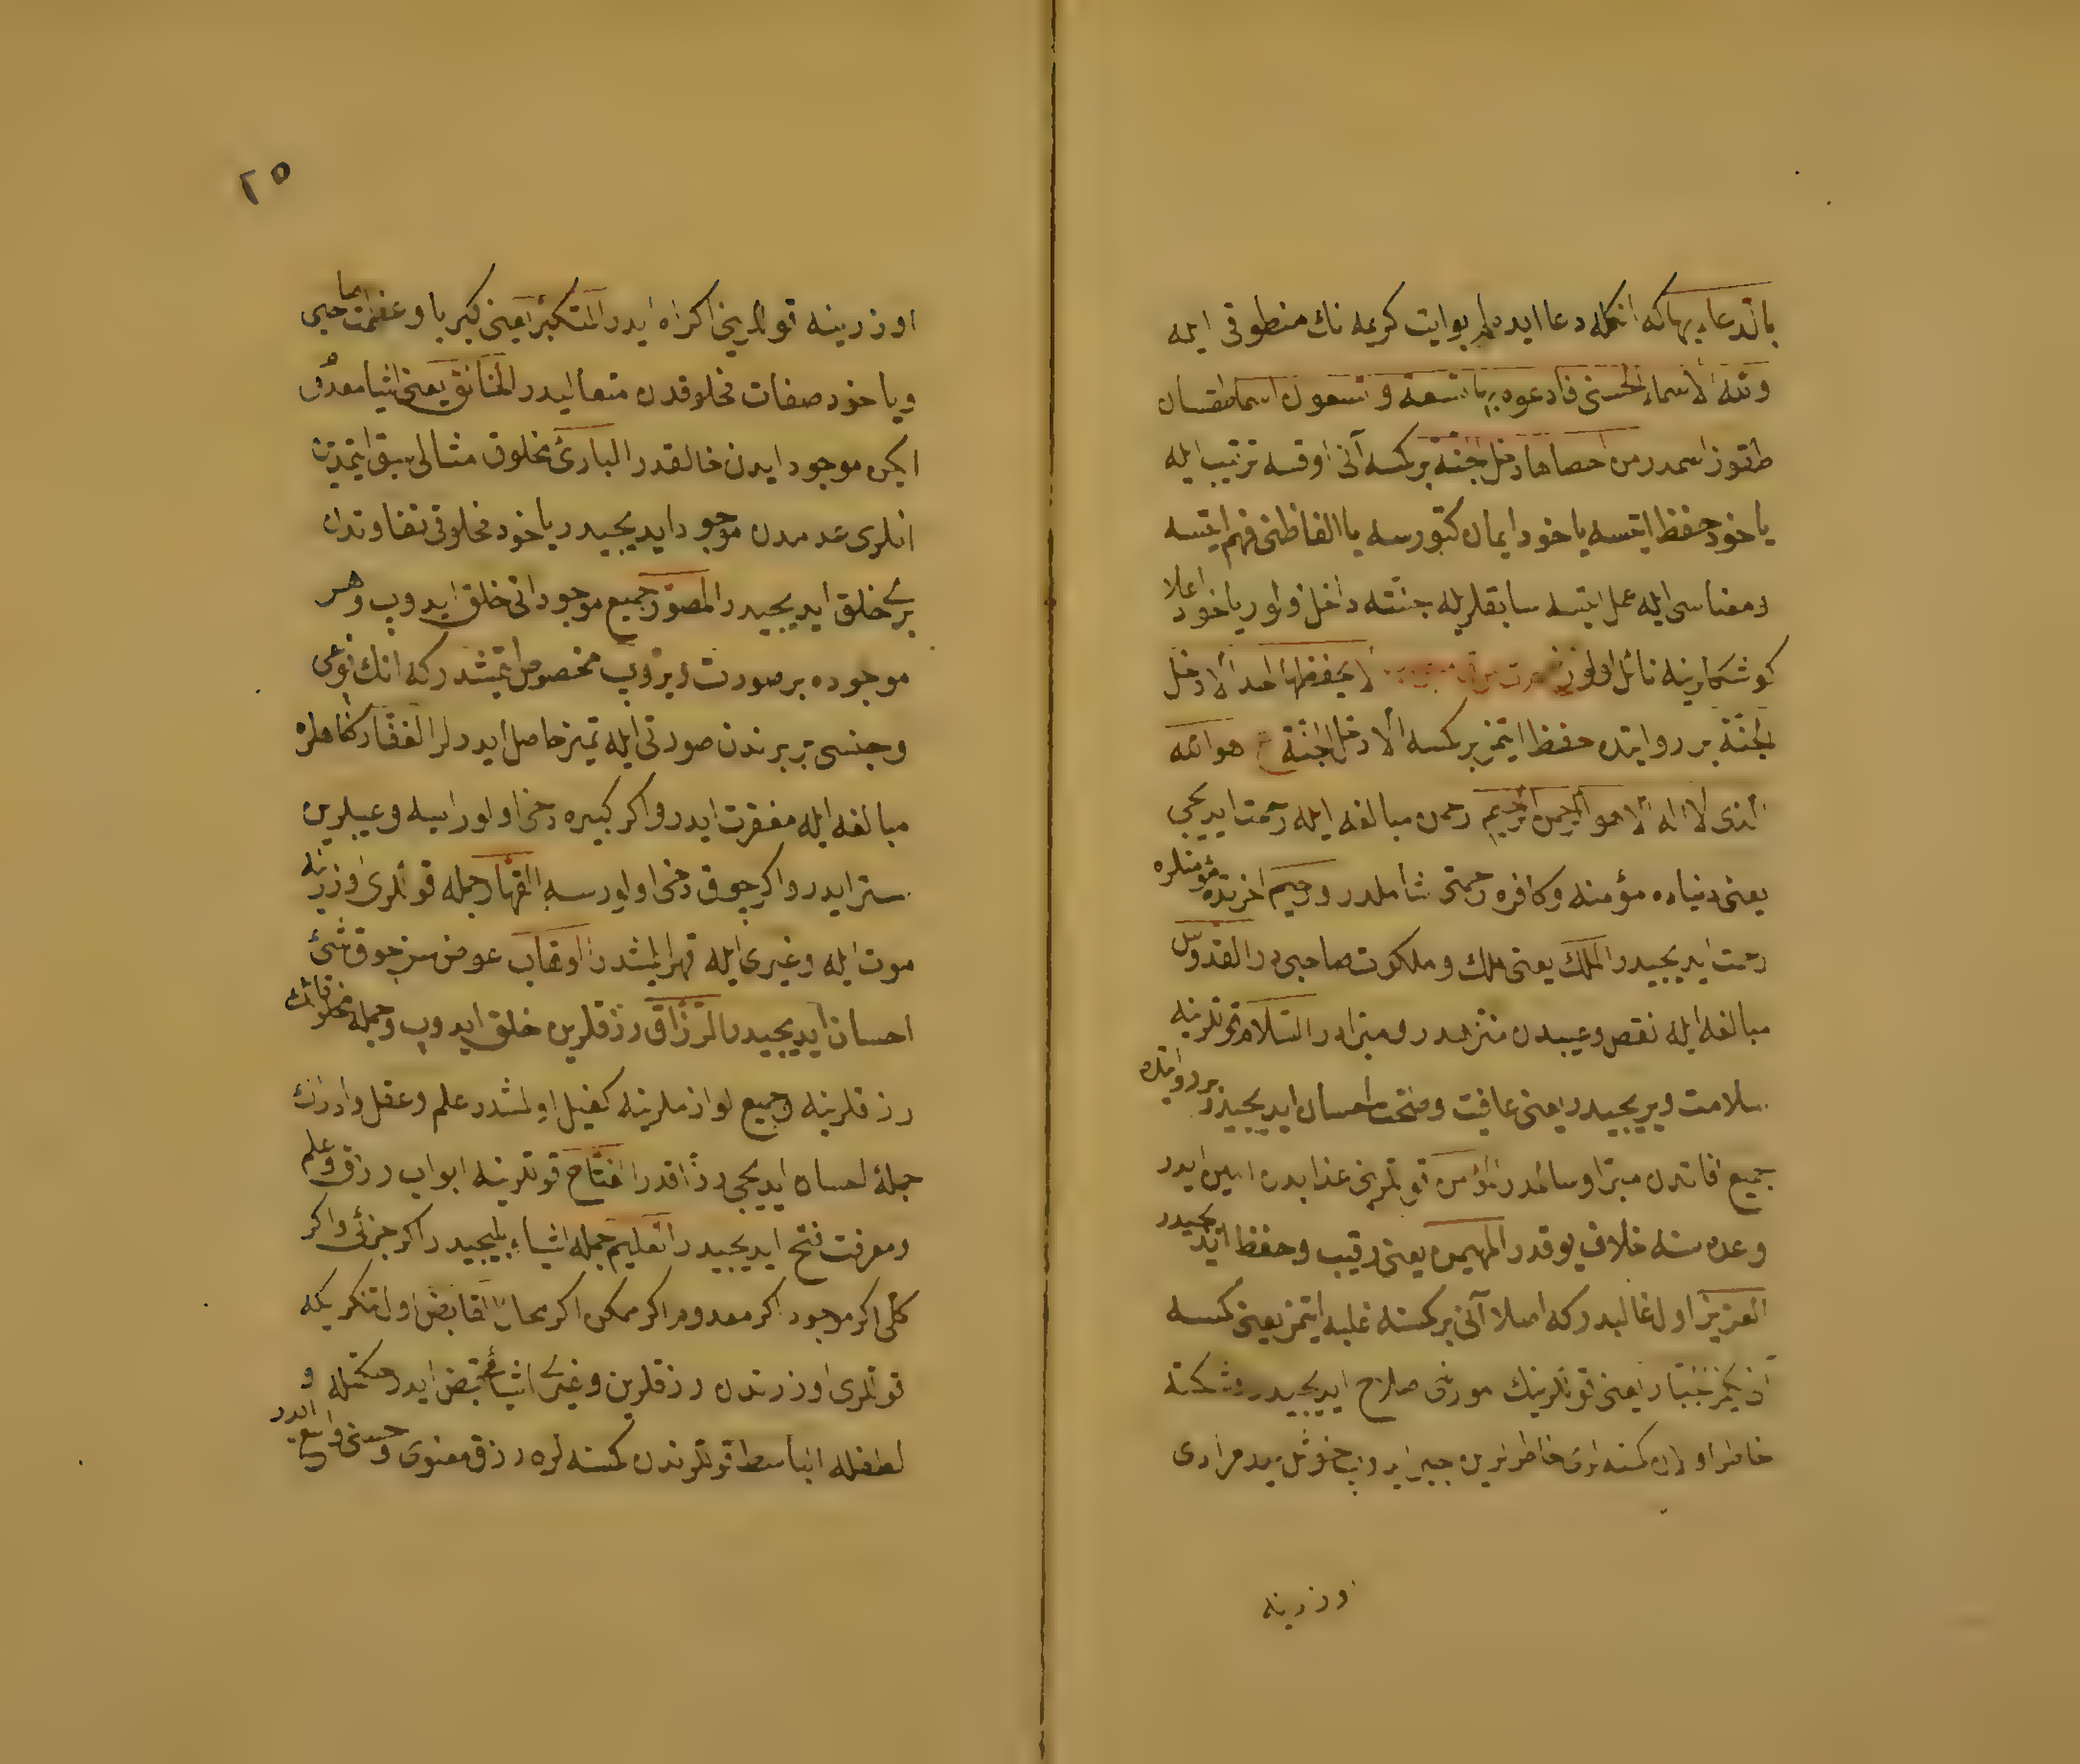 بالدعاء بهاكه انكله دعا ايده لر بو ايت كريمه نك منطوقى ايله
ولله الاسماء الحسنى فادعوه بها تسعة وتسعون اسما طقسان
طقوز اسمدر من احصاها دخل الجنة بر كمسه آنى اوقسه ترتيب ايله
ياخود حفظ ايتسه ياخود ايمان كتورسه يا الفاظنى فهم ايتسه
ومعناسى ايله عمل ايتسه سابقلر يله جنته داخل اولور ياخود اعلا
كوشكلرينه نائل اولور لا يحفظها احد الا دخل
الجنة بر روايتده حفظ ايتمز بر كمسه الا دخل الجنة هو الله
الذى لا اله الا هو الرحمن الرحيم رحمن مبالغه ايله رحمت ايديجى
يعنى دنياده مؤمنه وكافره رحمتى شاملدر ورحيم اخرتده مؤمنلره
رحمت ايديجيدر الملك يعنى ملك وملكوت صاحبى در القدوس
مبالغه ايله نقص وعيبدن منزهدر ومبرادر السلام قوللرينه
سلامت ويريجيدر يعنى عافيت وصحت احسان ايديجيدر بر روايتده
جميع افاتدن مبرا وسالمدر المؤمن قوللرينى عذابدن امين ايدر
وعده سنه خلاف يوقدر المهيمن يعنى رقيب وحفظ ايديجيدر
العزيز اول غالبدركه اصلا آنى بر كمسنه غلبه ايتمز يعنى كمسه
الجبار يعنى قوللرينك امورنى صلاح ايديجيدر وشكسته
خاطر اولان كمسنه لرك خاطرلرين جبر ايدوب خوش ايدر مرادى
اوزرينه
٢٥
اوزرينه قوللرينى اكراه ايدر المتكبر يعنى كبريا وعظمت صاحبى
وياخود صفات مخلوقدن متعاليدر الخالق يعنى اشيا معدوم
ايكن موجود ايدن خالقدر البارئ مخلوق مثالى سبق ايتمدين
انلرى عدمدن موجود ايديجيدر ياخود مخلوقى تفاوتدن
برى خلق ايديجيدر المصور جميع موجوداتى خلق ايدوب وهر
موجوده بر صورت ويروب مخصوص ايتمشدركه انك نوعى
وجنسى بر برندن صورتى ايله تميز حاصل ايدرلر الغفار كناهلره
مبالغه ايله مغفرت ايدر واكر كبيره دخى اولورايسه وعيبلرين
ستر ايدر واكر چوق دخى اولورسه القهار جمله قوللرى اوزرينه
موت ايله وغيرى ايله قهر ايلمشدر الوهاب عوض سز چوق شئ
احسان ايديجيدر الرزاق رزقلرين خلق ايدوب وجمله مخلوقاتك
رزقلرينه وجميع لوازملرينه كفيل اولمشدر علم وعقل وادراك
جمله احسان ايديجى رزاقدر الفتاح قوللرينه ابواب رزاق وعلم
ومعرفت فتح ايديجيدر العليم جمله اشياء بليجيدر اكر جزئى واكر
كلى اكر موجود اكر معدوم اكر ممكن اكر محال القابض اول تنكريكه
قوللرى اوزرندن رزقلرين وغيرى اشيايى قبض ايدر حكمتله و
لطفله الباسط قوللرندن كمسنه لره رزق معنوى وحسنى واسع ايدر